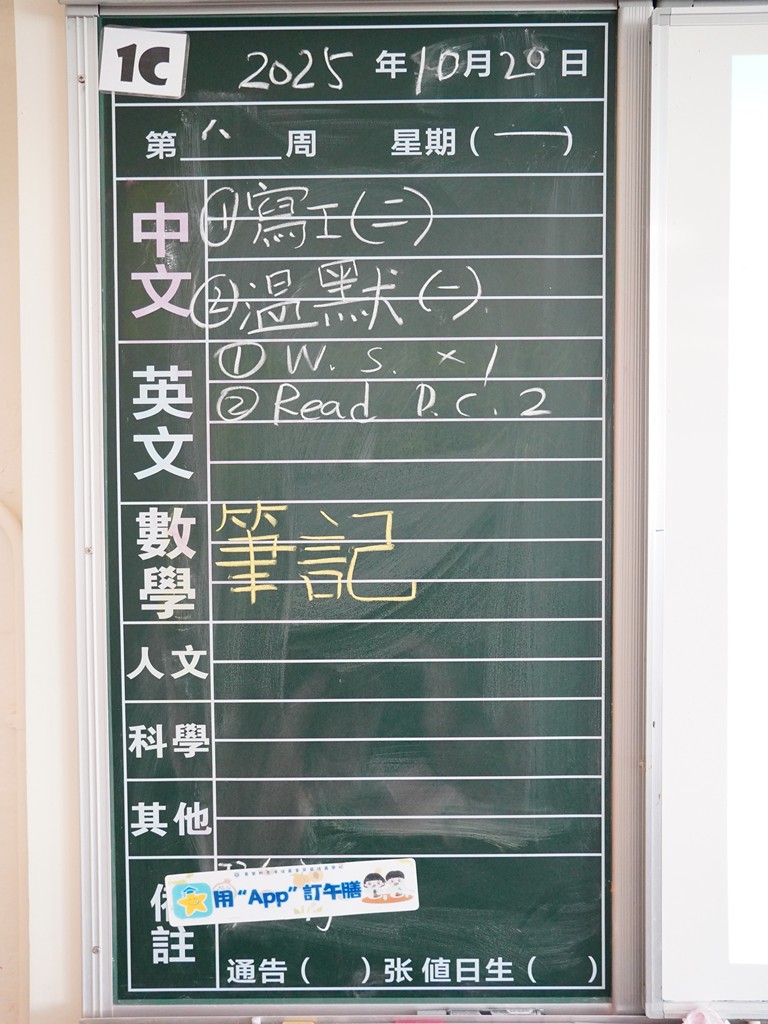 1C
2025 年 10 月 20 日
第 八 周 星期 ( 一 )
中文
① 寫工(二)
② 溫默(一)
英文
① W. S. × 1
② Read P. C. 2
數學
筆記
人文
科學
其他
備註
用“App”訂午膳
通告 ( ) 张 值日生 ( )